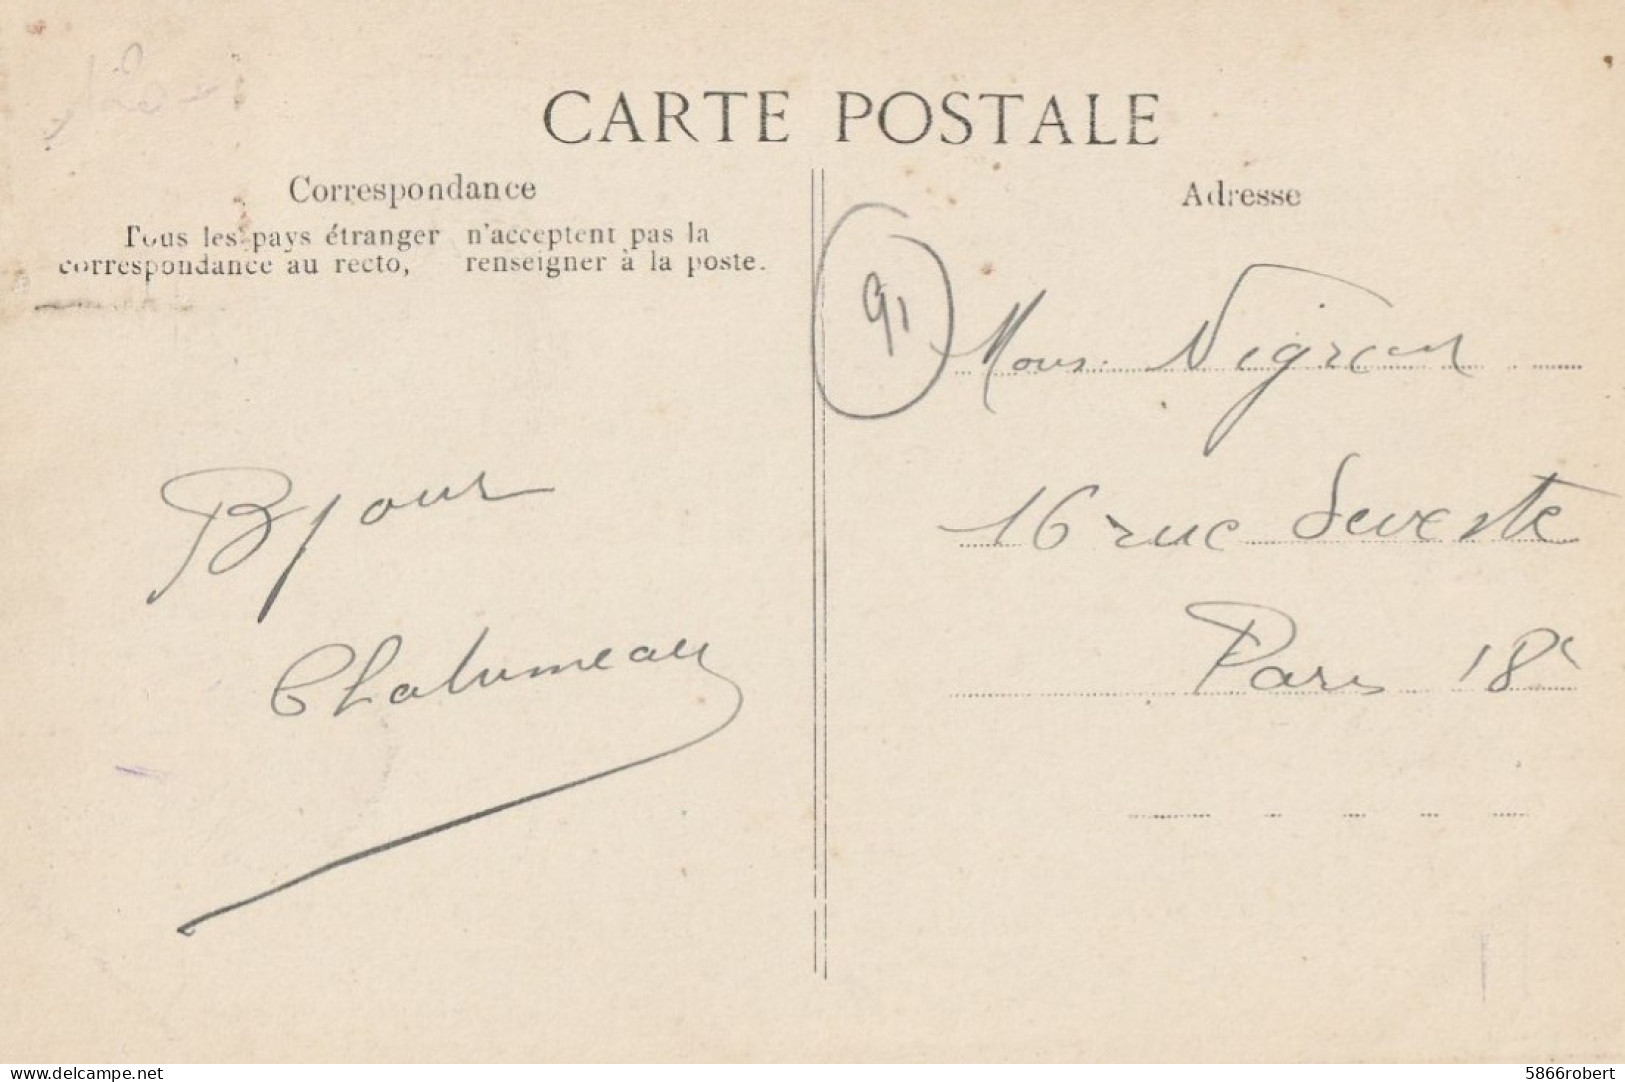 CARTE POSTALE
Correspondance
Tous les pays étranger n'acceptent pas la
correspondance au recto, renseigner à la poste.
Bjour
Chalumeau
Adresse
91
Mons. Vigreux
16 rue Seveste
Paris 18e
www.delcampe.net
5866robert